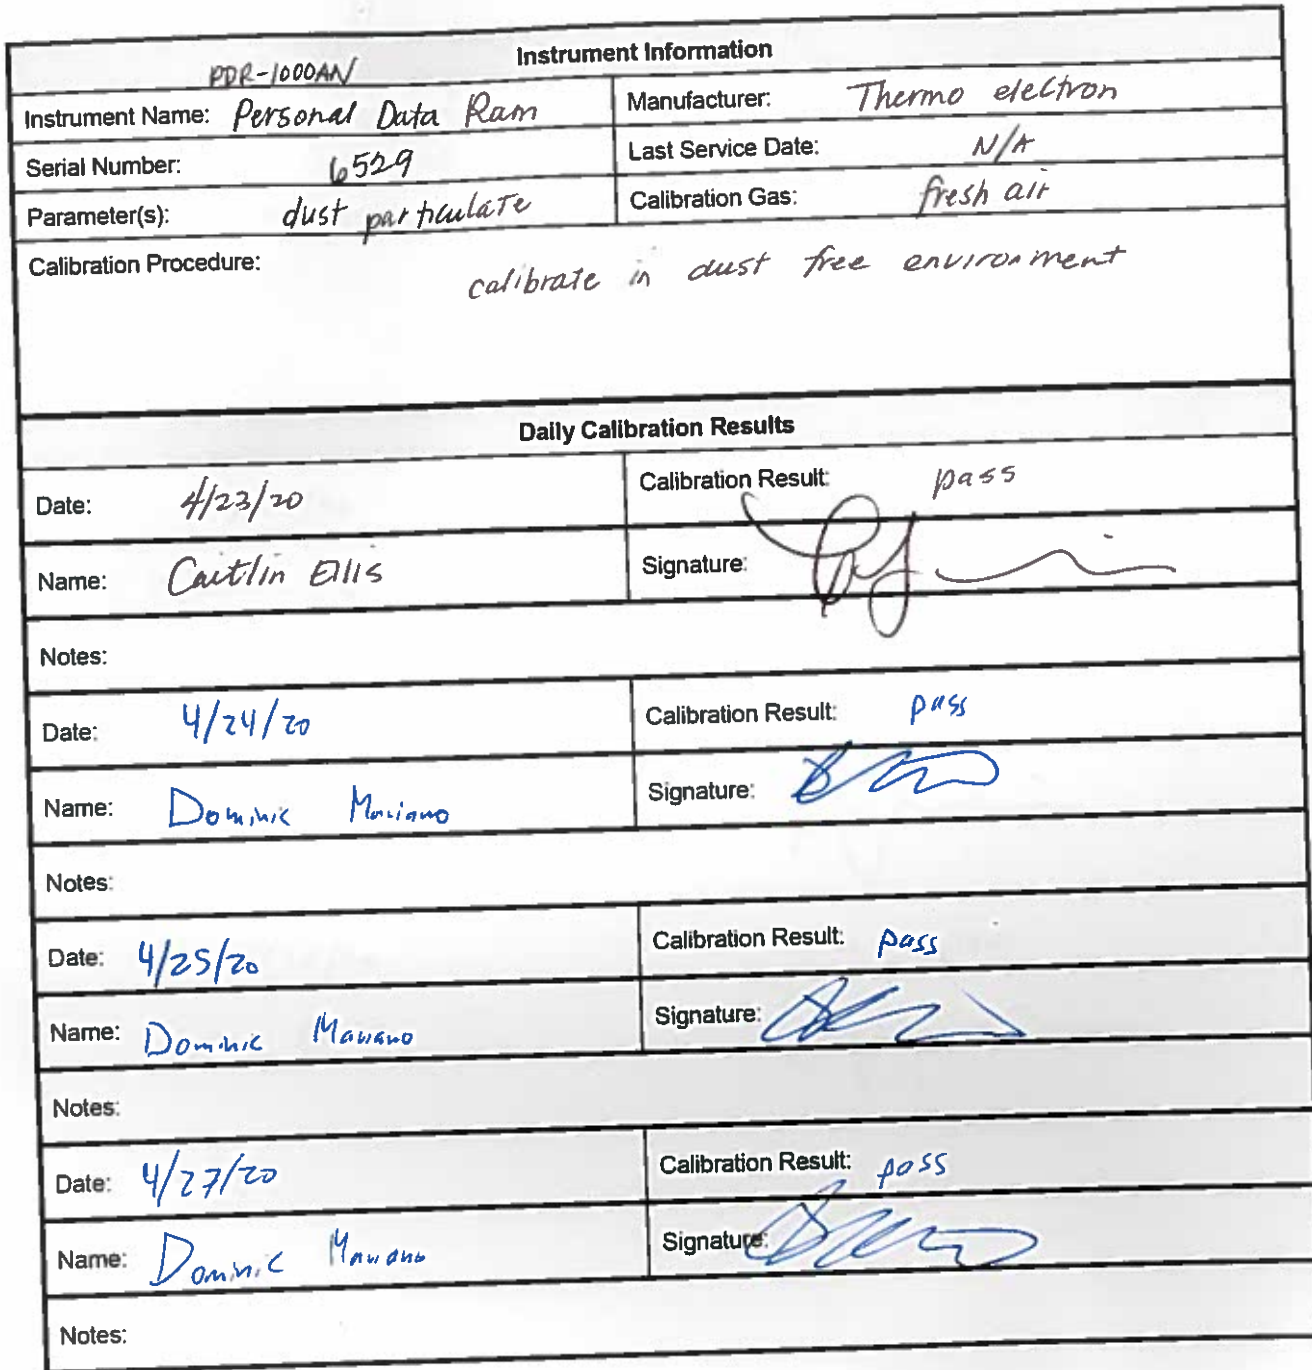 Instrument Information
PDR-1000AN
Instrument Name: Personal Data Ram
Manufacturer: Thermo electron
Serial Number: 6529
Last Service Date: N/A
Parameter(s): dust particulate
Calibration Gas: fresh air
Calibration Procedure: calibrate in dust free environment
Daily Calibration Results
Date: 4/23/20
Calibration Result: pass
Name: Caitlin Ellis
Signature:
Notes:
Date: 4/24/20
Calibration Result: pass
Name: Dominic Mariano
Signature:
Notes:
Date: 4/25/20
Calibration Result: pass
Name: Dominic Mariano
Signature:
Notes:
Date: 4/27/20
Calibration Result: pass
Name: Dominic Mariano
Signature:
Notes: